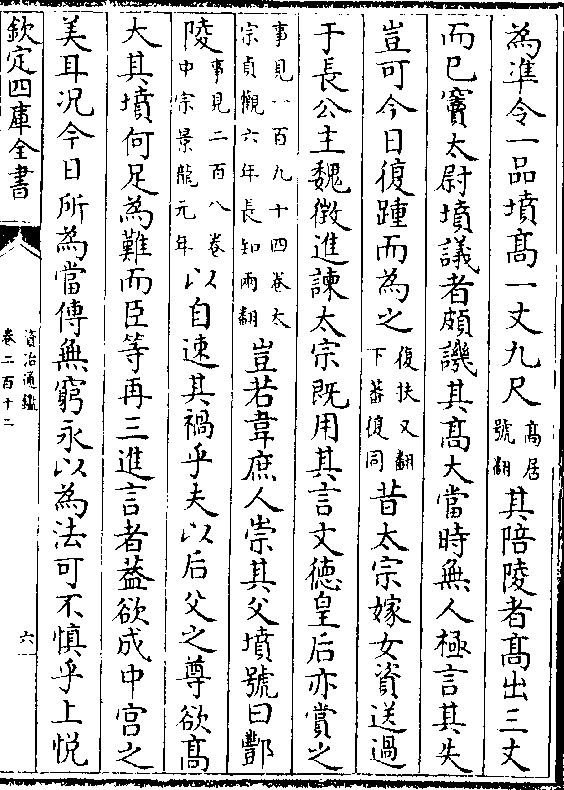 為準令一品墳髙一丈九尺髙居號翻其陪陵者髙出三丈
而已竇太尉墳議者頗譏其髙大當時無人極言其失
豈可今日復踵而為之復扶又翻下蓋復同昔太宗嫁女資送過
于長公主魏徵進諫太宗既用其言文德皇后亦賞之
事見一百九十四卷太宗貞觀六年長知兩翻豈若韋庶人崇其父墳號曰酆
陵事見二百八卷中宗景龍元年以自速其禍乎夫以后父之尊欲髙
大其墳何足為難而臣等再三進言者葢欲成中宮之
美耳况今日所為當傳無窮永以為法可不慎乎上悦
欽定四庫全書
資治通鑑
卷二百十二
六